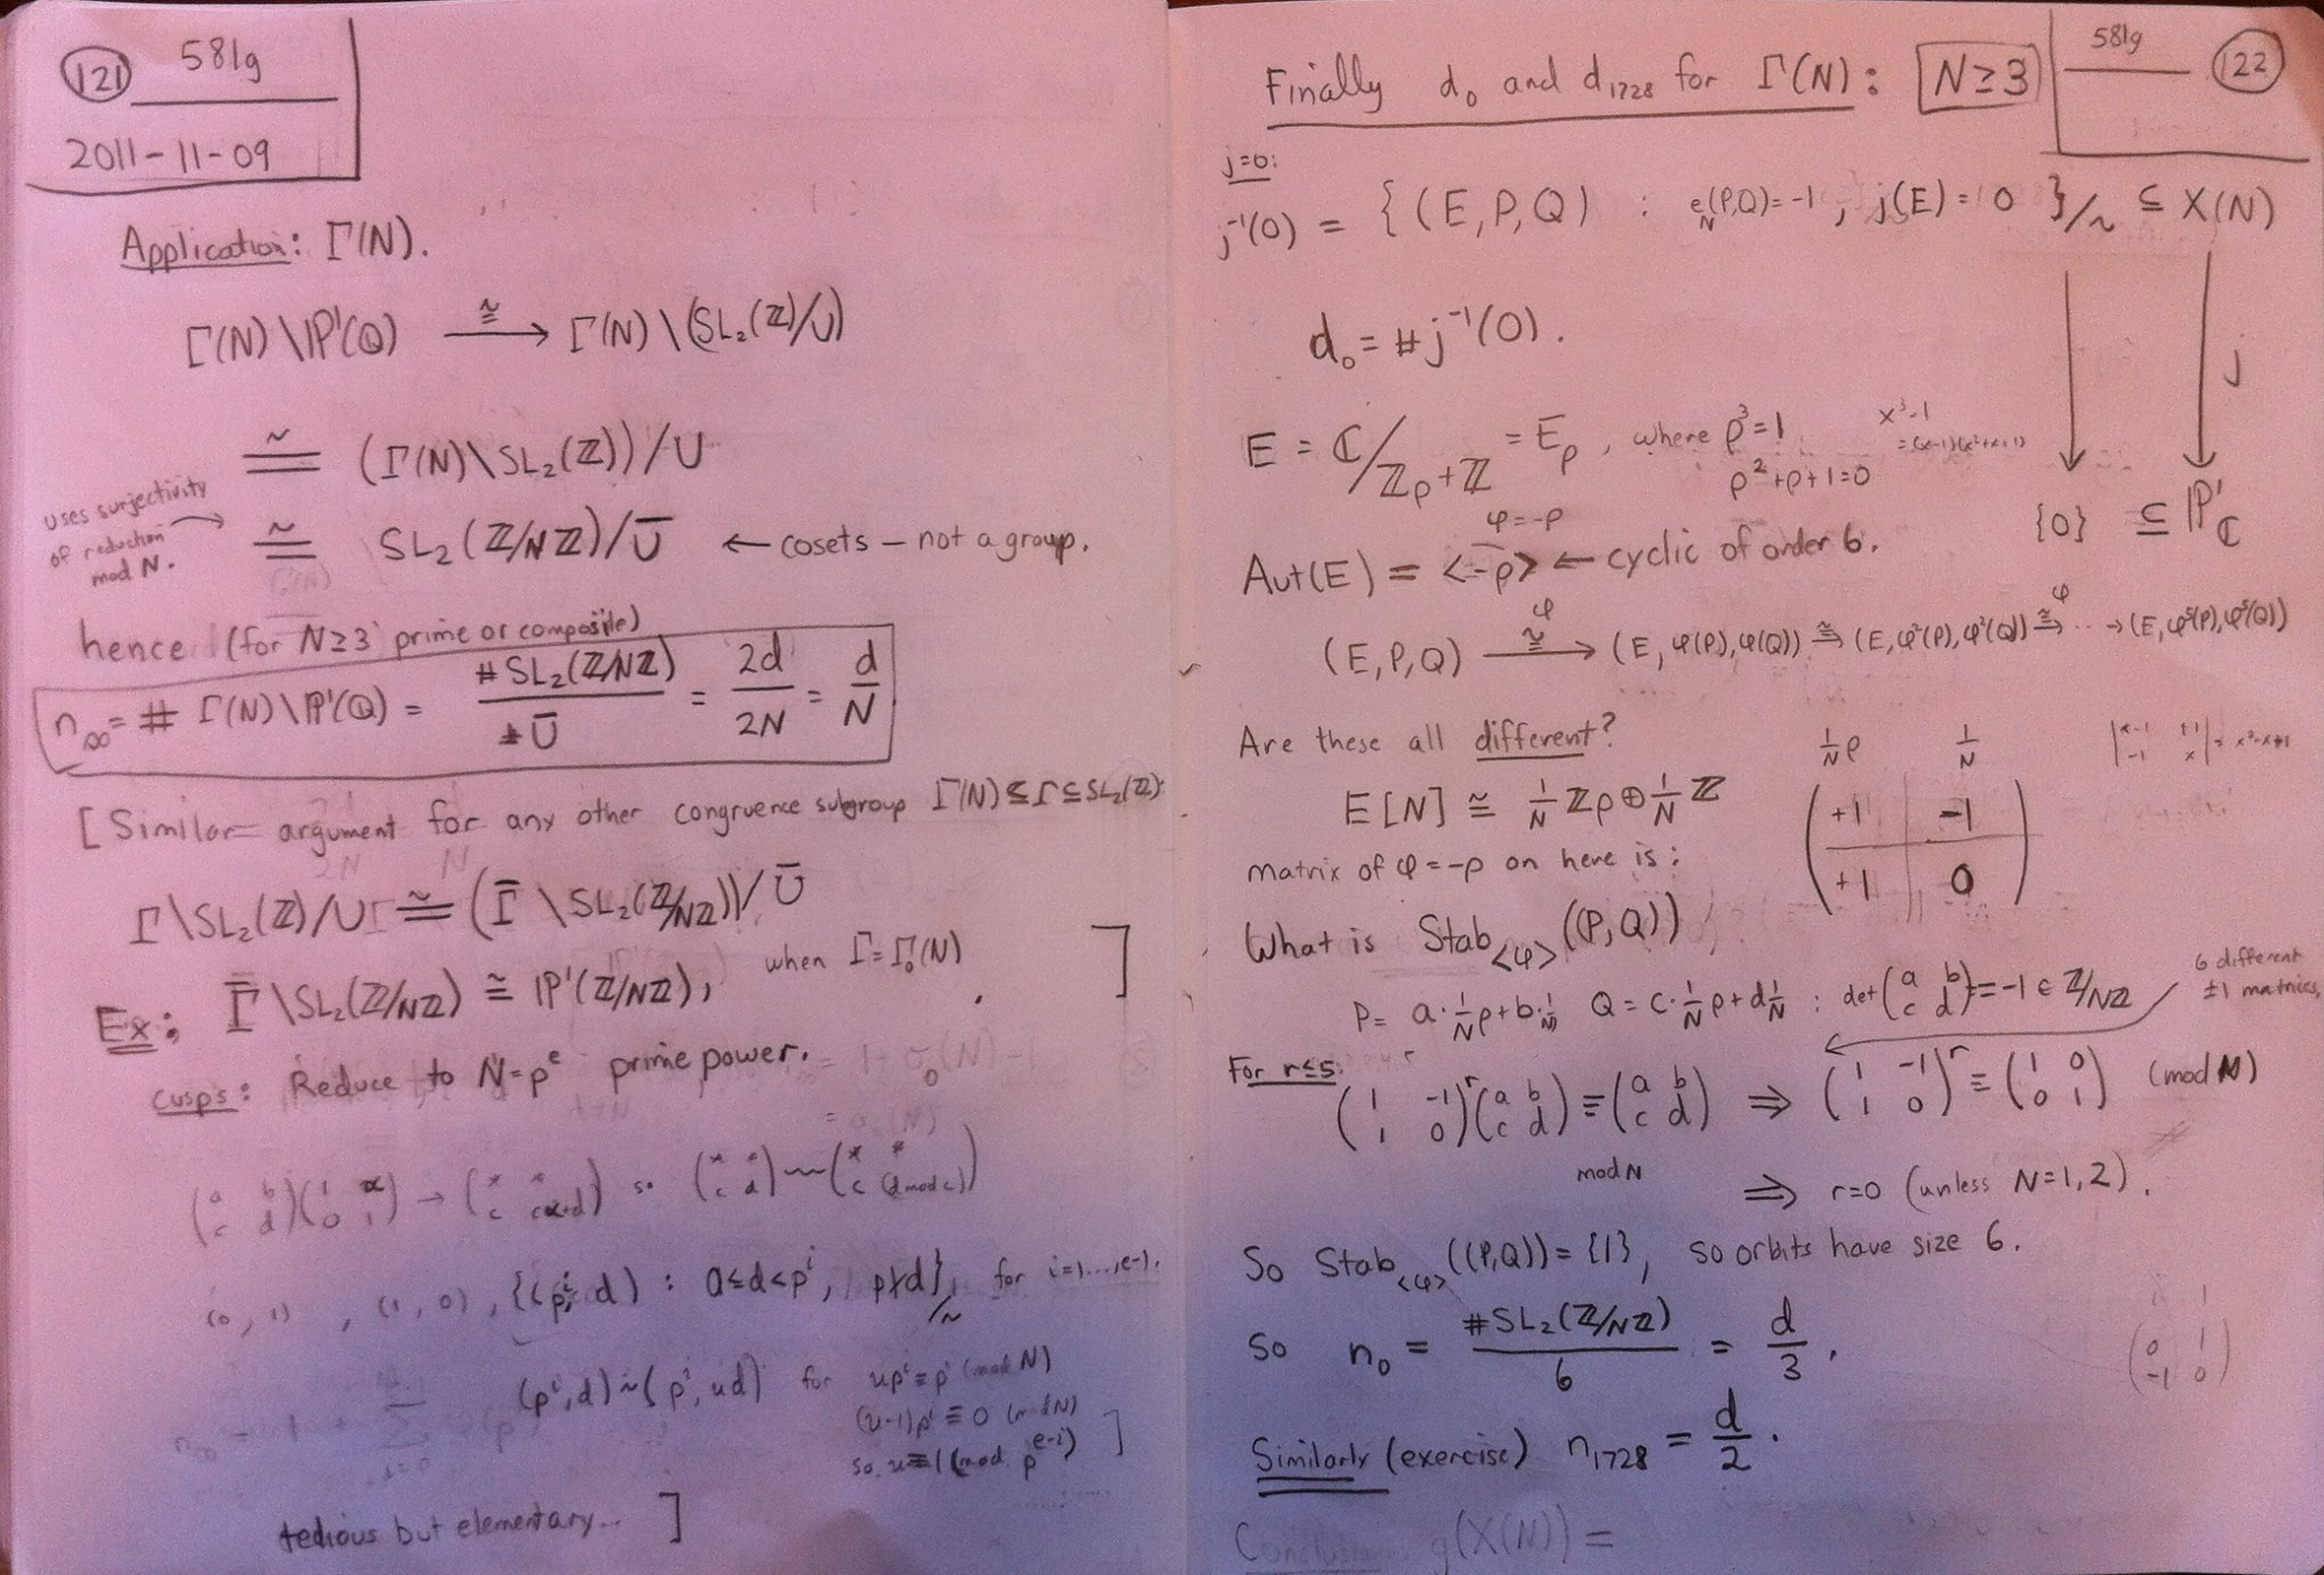 121 581g
2011-11-09
Application: Γ(N).
Γ(N)\ℙ¹(ℚ) ≅→ Γ(N)\(SL₂(ℤ)/U)
≅ (Γ(N)\SL₂(ℤ))/U
uses surjectivity of reduction mod N.
≅ SL₂(ℤ/Nℤ)/Ū ← cosets – not a group.
hence (for N≥3 prime or composite)
n∞ = # Γ(N)\ℙ¹(ℚ) = #SL₂(ℤ/Nℤ) / ±Ū = 2d/2N = d/N
[Similar argument for any other congruence subgroup Γ(N)⊆Γ⊆SL₂(ℤ):
Γ\SL₂(ℤ)/U ≅ (Γ̄\SL₂(ℤ/Nℤ))/Ū
Ex: Γ̄\SL₂(ℤ/Nℤ) ≅ ℙ¹(ℤ/Nℤ), when Γ=Γ₀(N). ]
cusps: Reduce to N=pᵉ prime power.
(a b; c d)(1 α; 0 1) → (* *; c cα+d) so (* *; c d) ~ (* *; c (d mod c))
(0,1), (1,0), {(pⁱ, d) : 0≤d<pⁱ, p∤d}/~ for i=1,...,e-1.
(pⁱ,d)~(pⁱ,ud) for upⁱ≡pⁱ (mod N)
(u-1)pⁱ≡0 (mod N)
so u≡1 (mod p^(e-i)) ]
tedious but elementary... ]
Finally d₀ and d₁₇₂₈ for Γ(N): N≥3
581g 122
j=0:
j⁻¹(0) = {(E,P,Q) : e_N(P,Q)=-1, j(E)=0}/~ ⊆ X(N)
d₀ = #j⁻¹(0).
j
E = ℂ/ℤρ+ℤ = E_ρ, where ρ³=1 x³-1
ρ²+ρ+1=0 =(x-1)(x²+x+1)
{0} ⊆ ℙ¹_ℂ
φ=-ρ
Aut(E) = <-ρ> ← cyclic of order 6.
(E,P,Q) ≅→ᵠ (E,φ(P),φ(Q)) ≅→ (E,φ²(P),φ²(Q)) ≅→ᵠ ··· → (E,φ⁵(P),φ⁵(Q))
Are these all different?
1/N ρ 1/N |x-1 +1; -1 x| = x²-x+1
E[N] ≅ 1/N ℤρ ⊕ 1/N ℤ
matrix of φ=-ρ on here is: (+1 -1; +1 0)
What is Stab_<φ>((P,Q))
6 different ±1 matrices.
P = a·1/N ρ+b·1/N Q = c·1/N ρ+d 1/N : det(a b; c d)=-1 ∈ ℤ/Nℤ
For r≤5: (1 -1; 1 0)ʳ(a b; c d) ≡ (a b; c d) ⇒ (1 -1; 1 0)ʳ ≡ (1 0; 0 1) (mod N)
mod N
⇒ r=0 (unless N=1,2).
So Stab_<φ>((P,Q)) = {1}, so orbits have size 6.
So n₀ = #SL₂(ℤ/Nℤ)/6 = d/3.
(0 1; -1 0)
Similarly (exercise) n₁₇₂₈ = d/2.
Conclusion g(X(N)) =